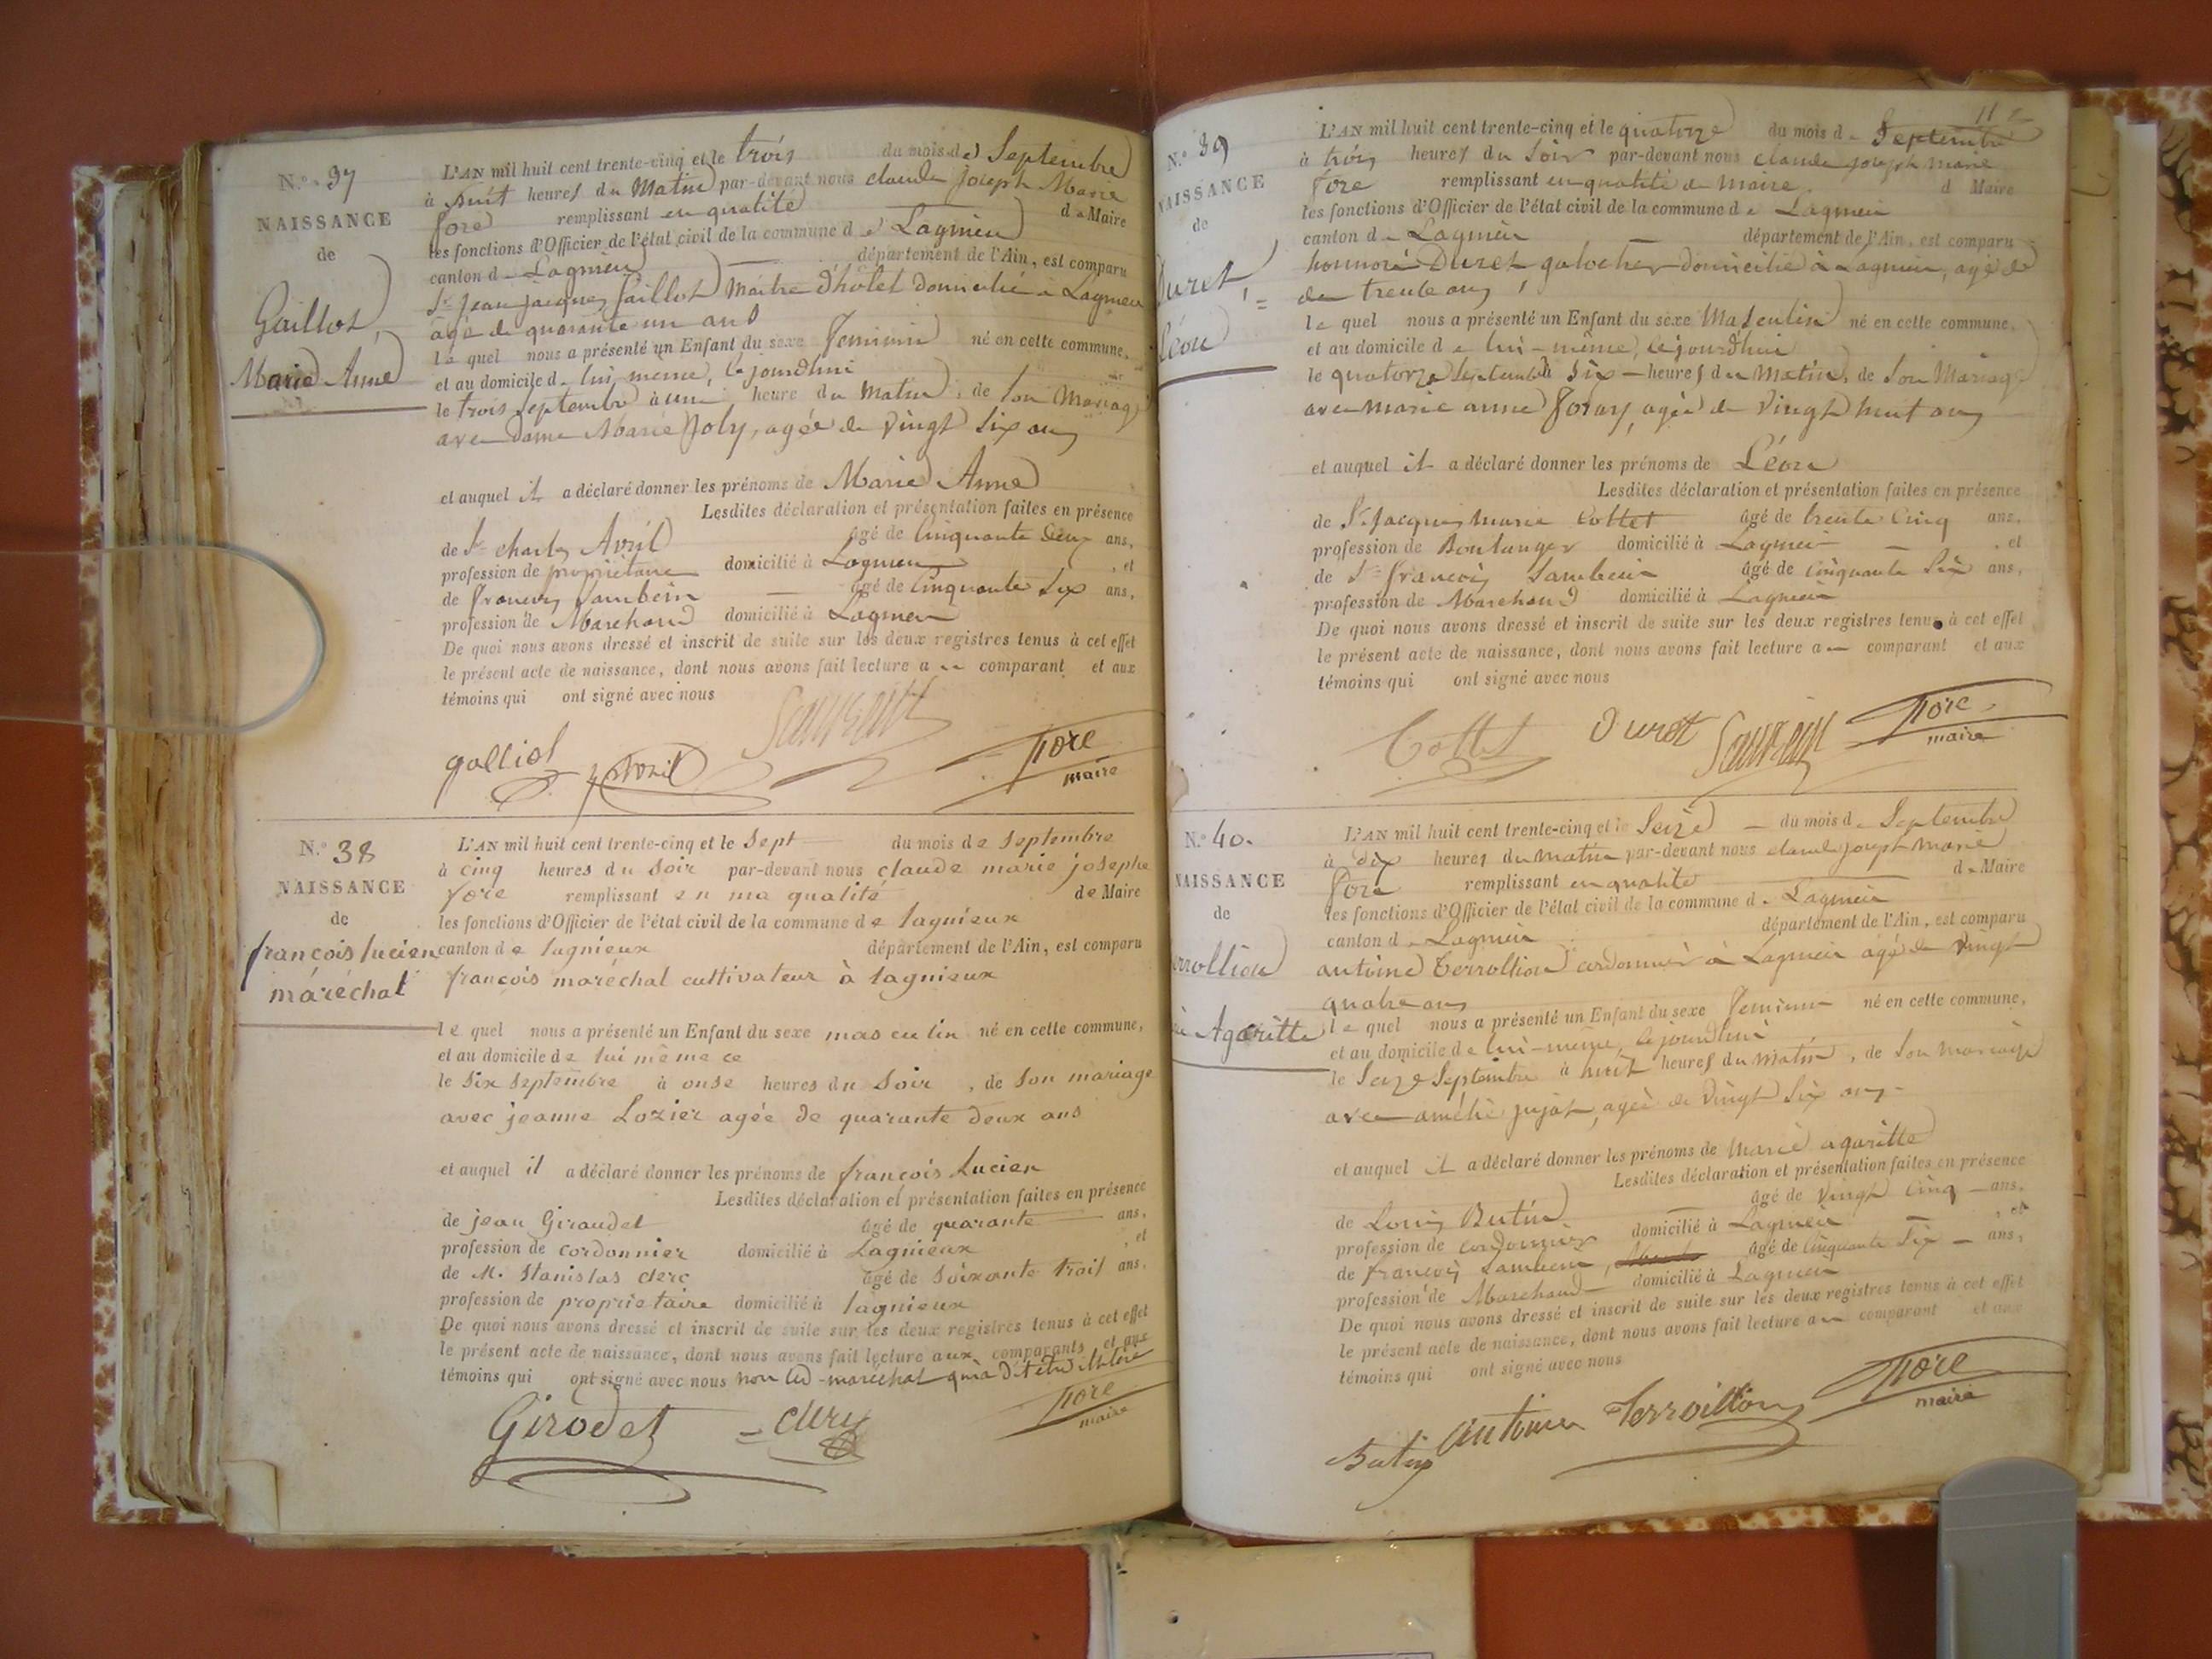 N.º 37
NAISSANCE
de
Gaillot,
Marie Anne
L'AN mil huit cent trente-cinq et le trois du mois de Septembre
à huit heures du Matin par-devant nous claude Joseph Marie
fore remplissant en qualité de Maire
les fonctions d'Officier de l'état civil de la commune de Lagnieu
canton de Lagnieu département de l'Ain, est comparu
Sr Jean Jacques Gaillot Maitre d'hotel domicilié à Lagnieu
agé de quarante un ans
le quel nous a présenté un Enfant du sexe Feminin né en cette commune,
et au domicile de lui même, cejourdhui
le trois Septembre à une heure du Matin, de son Mariage
avec Dame Marie Joly, agée de vingt six ans
et auquel il a déclaré donner les prénoms de Marie Anne
Lesdites déclaration et présentation faites en présence
de Sr charles Avril âgé de Cinquante deux ans,
profession de propriétaire domicilié à Lagnieu, et
de francois Sambein âgé de Cinquante Six ans,
profession de Marchand domicilié à Lagnieu
De quoi nous avons dressé et inscrit de suite sur les deux registres tenus à cet effet
le présent acte de naissance, dont nous avons fait lecture au comparant et aux
témoins qui ont signé avec nous
galliot Avril fore
maire
N.º 38
NAISSANCE
de
françois lucien
maréchal
L'AN mil huit cent trente-cinq et le Sept du mois de Septembre
à cinq heures du Soir par-devant nous claude marie josephe
fore remplissant en ma qualité de Maire
les fonctions d'Officier de l'état civil de la commune de lagnieux
canton de lagnieux département de l'Ain, est comparu
françois maréchal cultivateur à lagnieux
le quel nous a présenté un Enfant du sexe masculin né en cette commune,
et au domicile de lui même ce
le six septembre à onse heures du Soir, de Son mariage
avec jeanne Lozier agée de quarante deux ans
et auquel il a déclaré donner les prénoms de françois Lucien
Lesdites déclaration et présentation faites en présence
de jean Giraudet âgé de quarante ans,
profession de cordonnier domicilié à Lagnieux, et
de M. Stanislas clerc âgé de Soixante trois ans,
profession de proprietaire domicilié à lagnieux
De quoi nous avons dressé et inscrit de suite sur les deux registres tenus à cet effet
le présent acte de naissance, dont nous avons fait lecture aux comparants et aux
témoins qui ont signé avec nous non led. maréchal qui a dit être illitéré
Girodet fore
maire
112
N.º 39
NAISSANCE
de
Duret,
Léon
L'AN mil huit cent trente-cinq et le quatorze du mois de Septembre
à trois heures du Soir par-devant nous claude joseph marie
fore remplissant en qualité de maire. d Maire
les fonctions d'Officier de l'état civil de la commune de Lagnieu
canton de Lagnieu département de l'Ain, est comparu
honnoré Duret galocher domicilié à Lagnieu, agé de
de trente ans,
le quel nous a présenté un Enfant du sexe Masculin né en cette commune,
et au domicile de lui-même, cejourdhui
le quatorze Septembre à Six heures du Matin, de son Mariage
avec marie anne foray, agée de vingt huit ans
et auquel il a déclaré donner les prénoms de Léon
Lesdites déclaration et présentation faites en présence
de Sr Jacques marie Cottet âgé de trente Cinq ans,
profession de Boulanger domicilié à Lagnieu, et
de Sr françois Sambein âgé de cinquante Six ans,
profession de Marchand domicilié à Lagnieu
De quoi nous avons dressé et inscrit de suite sur les deux registres tenus à cet effet
le présent acte de naissance, dont nous avons fait lecture au comparant et aux
témoins qui ont signé avec nous
Cottet Duret fore
maire
N.º 40.
NAISSANCE
de
rrollion
Agaritte
L'AN mil huit cent trente-cinq et le Seize du mois de Septembre
à dix heures du matin par-devant nous claude joseph marie
fore remplissant en qualité de Maire
les fonctions d'Officier de l'état civil de la commune de Lagnieu
canton de Lagnieu département de l'Ain, est comparu
antoine Terrollion cordonnier à Lagnieu agé de vingt
quatre ans
le quel nous a présenté un Enfant du sexe Feminin né en cette commune,
et au domicile de lui-même, cejourdhui
le Seize Septembre à huit heures du Matin, de Son mariage
avec amélie jujat, agée de vingt Six ans
et auquel il a déclaré donner les prénoms de Marie agaritte
Lesdites déclaration et présentation faites en présence
de Louis Butin âgé de vingt cinq ans,
profession de cordonnier domicilié à Lagnieu, et
de françois Sambein, âgé de Cinquante Six ans,
profession de Marchand domicilié à Lagnieu
De quoi nous avons dressé et inscrit de suite sur les deux registres tenus à cet effet
le présent acte de naissance, dont nous avons fait lecture au comparant et aux
témoins qui ont signé avec nous
Butin Antoine Terroillon fore
maire